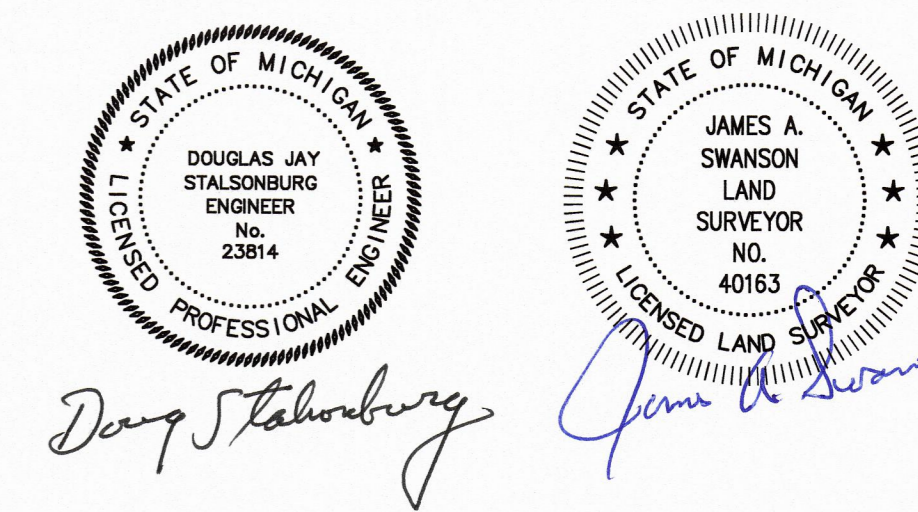 STATE OF MICHIGAN
DOUGLAS JAY
STALSONBURG
ENGINEER
No.
23814
LICENSED PROFESSIONAL ENGINEER
Doug Stalsonburg
STATE OF MICHIGAN
JAMES A.
SWANSON
LAND
SURVEYOR
NO.
40163
LICENSED LAND SURVEYOR
James A Swan